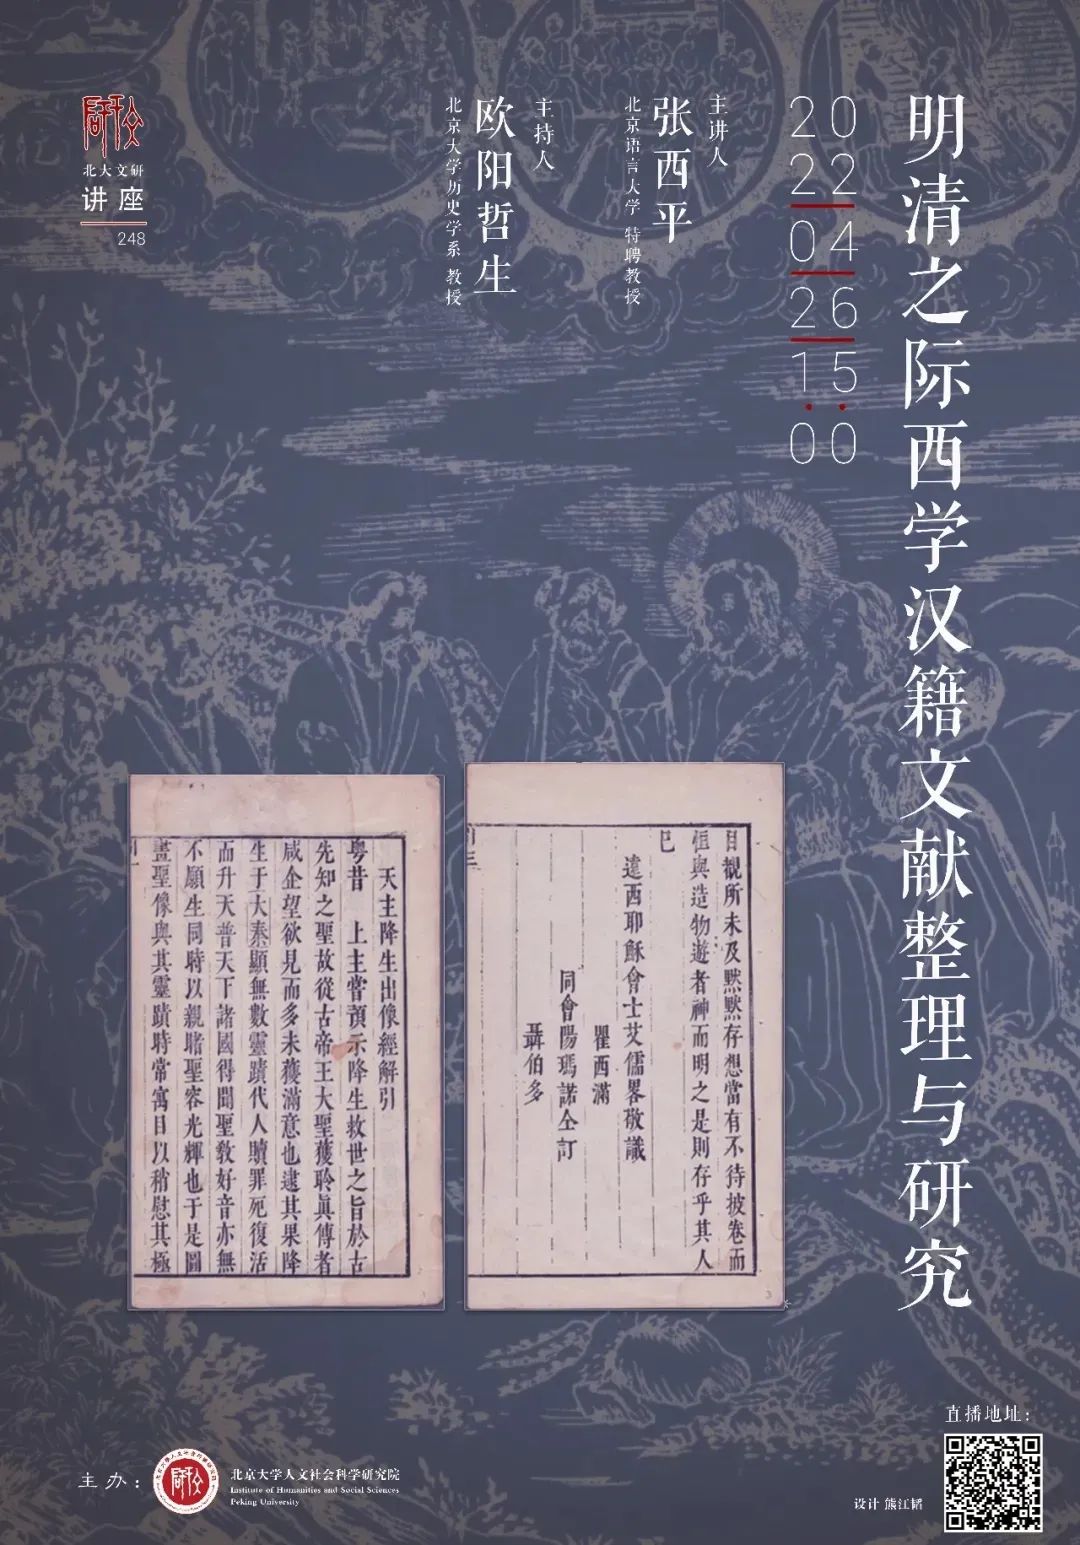 明清之际西学汉籍文献整理与研究
2022
04
26
15:00
主讲人
张西平
北京语言大学 特聘教授
主持人
欧阳哲生
北京大学历史学系 教授
北大文研
讲座
248
目覩所未及黙黙存想當有不待披卷而
恒與造物遊者神而明之是則存乎其人
已
遠西耶穌會士艾儒畧敬識
瞿西滿
同會陽瑪諾仝訂
聶伯多
天主降生出像經解引
粤昔 上主嘗預示降生救世之旨於古
先知之聖故從古帝王大聖獲聆眞傳者
咸企望欲見而多未獲滿意也逮其果降
生于大秦顯無數靈蹟代人贖罪死復活
而升天普天下諸國得聞聖敎好音亦無
不願生同時以親睹聖容光輝也于是圖
畫聖像與其靈蹟時常寓目以稍慰其極
主办：
北京大学人文社会科学研究院
Institute of Humanities and Social Sciences
Peking University
直播地址：
设计 熊江韬